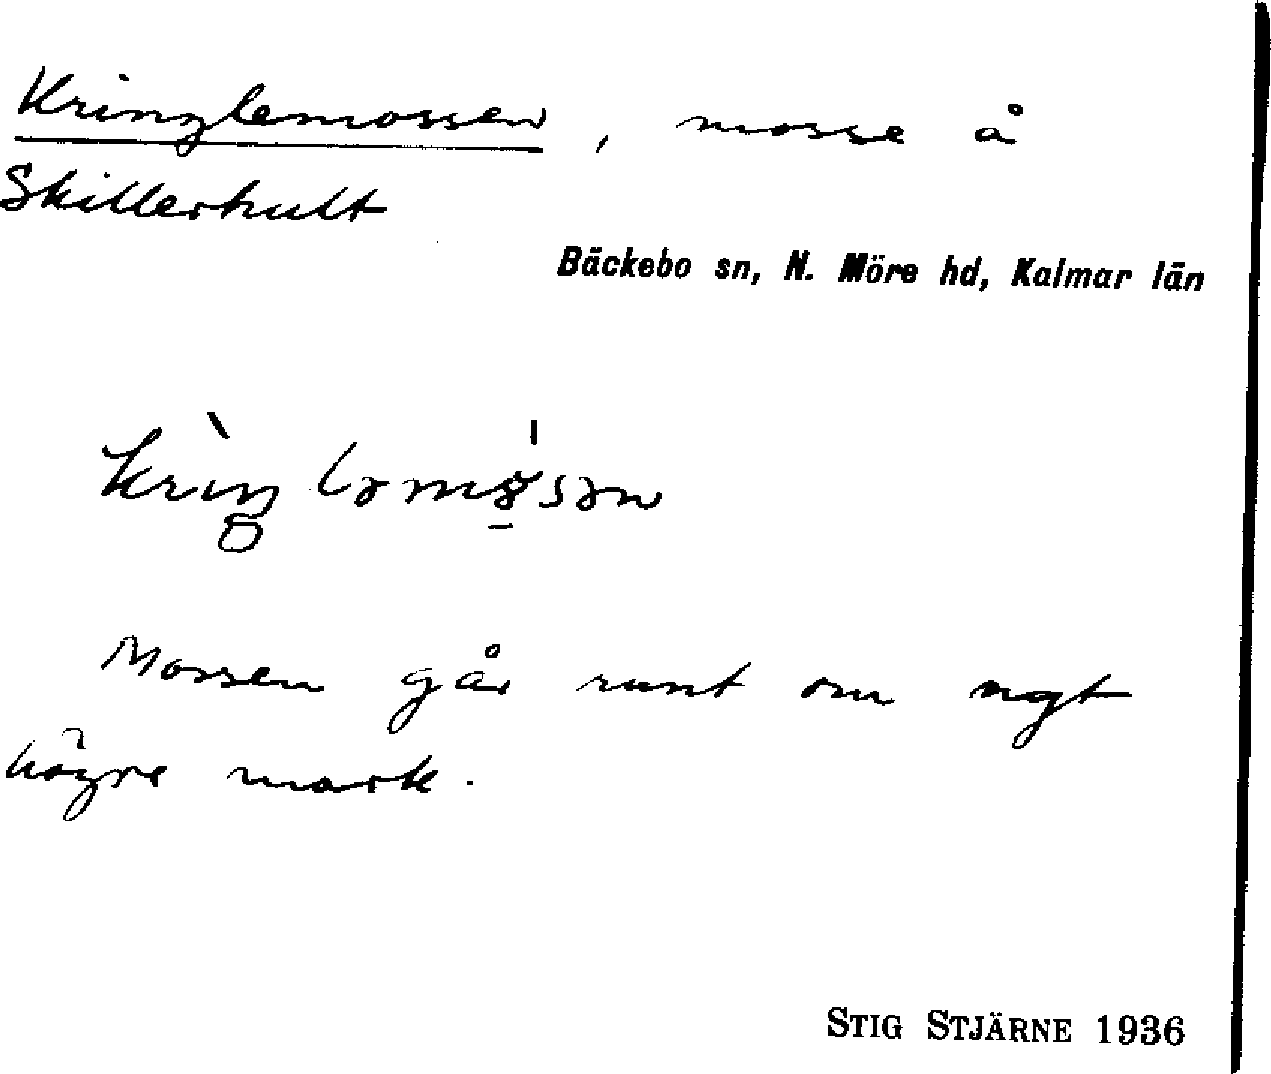 Kringlemossen, mosse å
Skillerhult
Bäckebo sn, N. Möre hd, Kalmar län
Mossen går runt om ngt
högre mark.
STIG STJÄRNE 1936